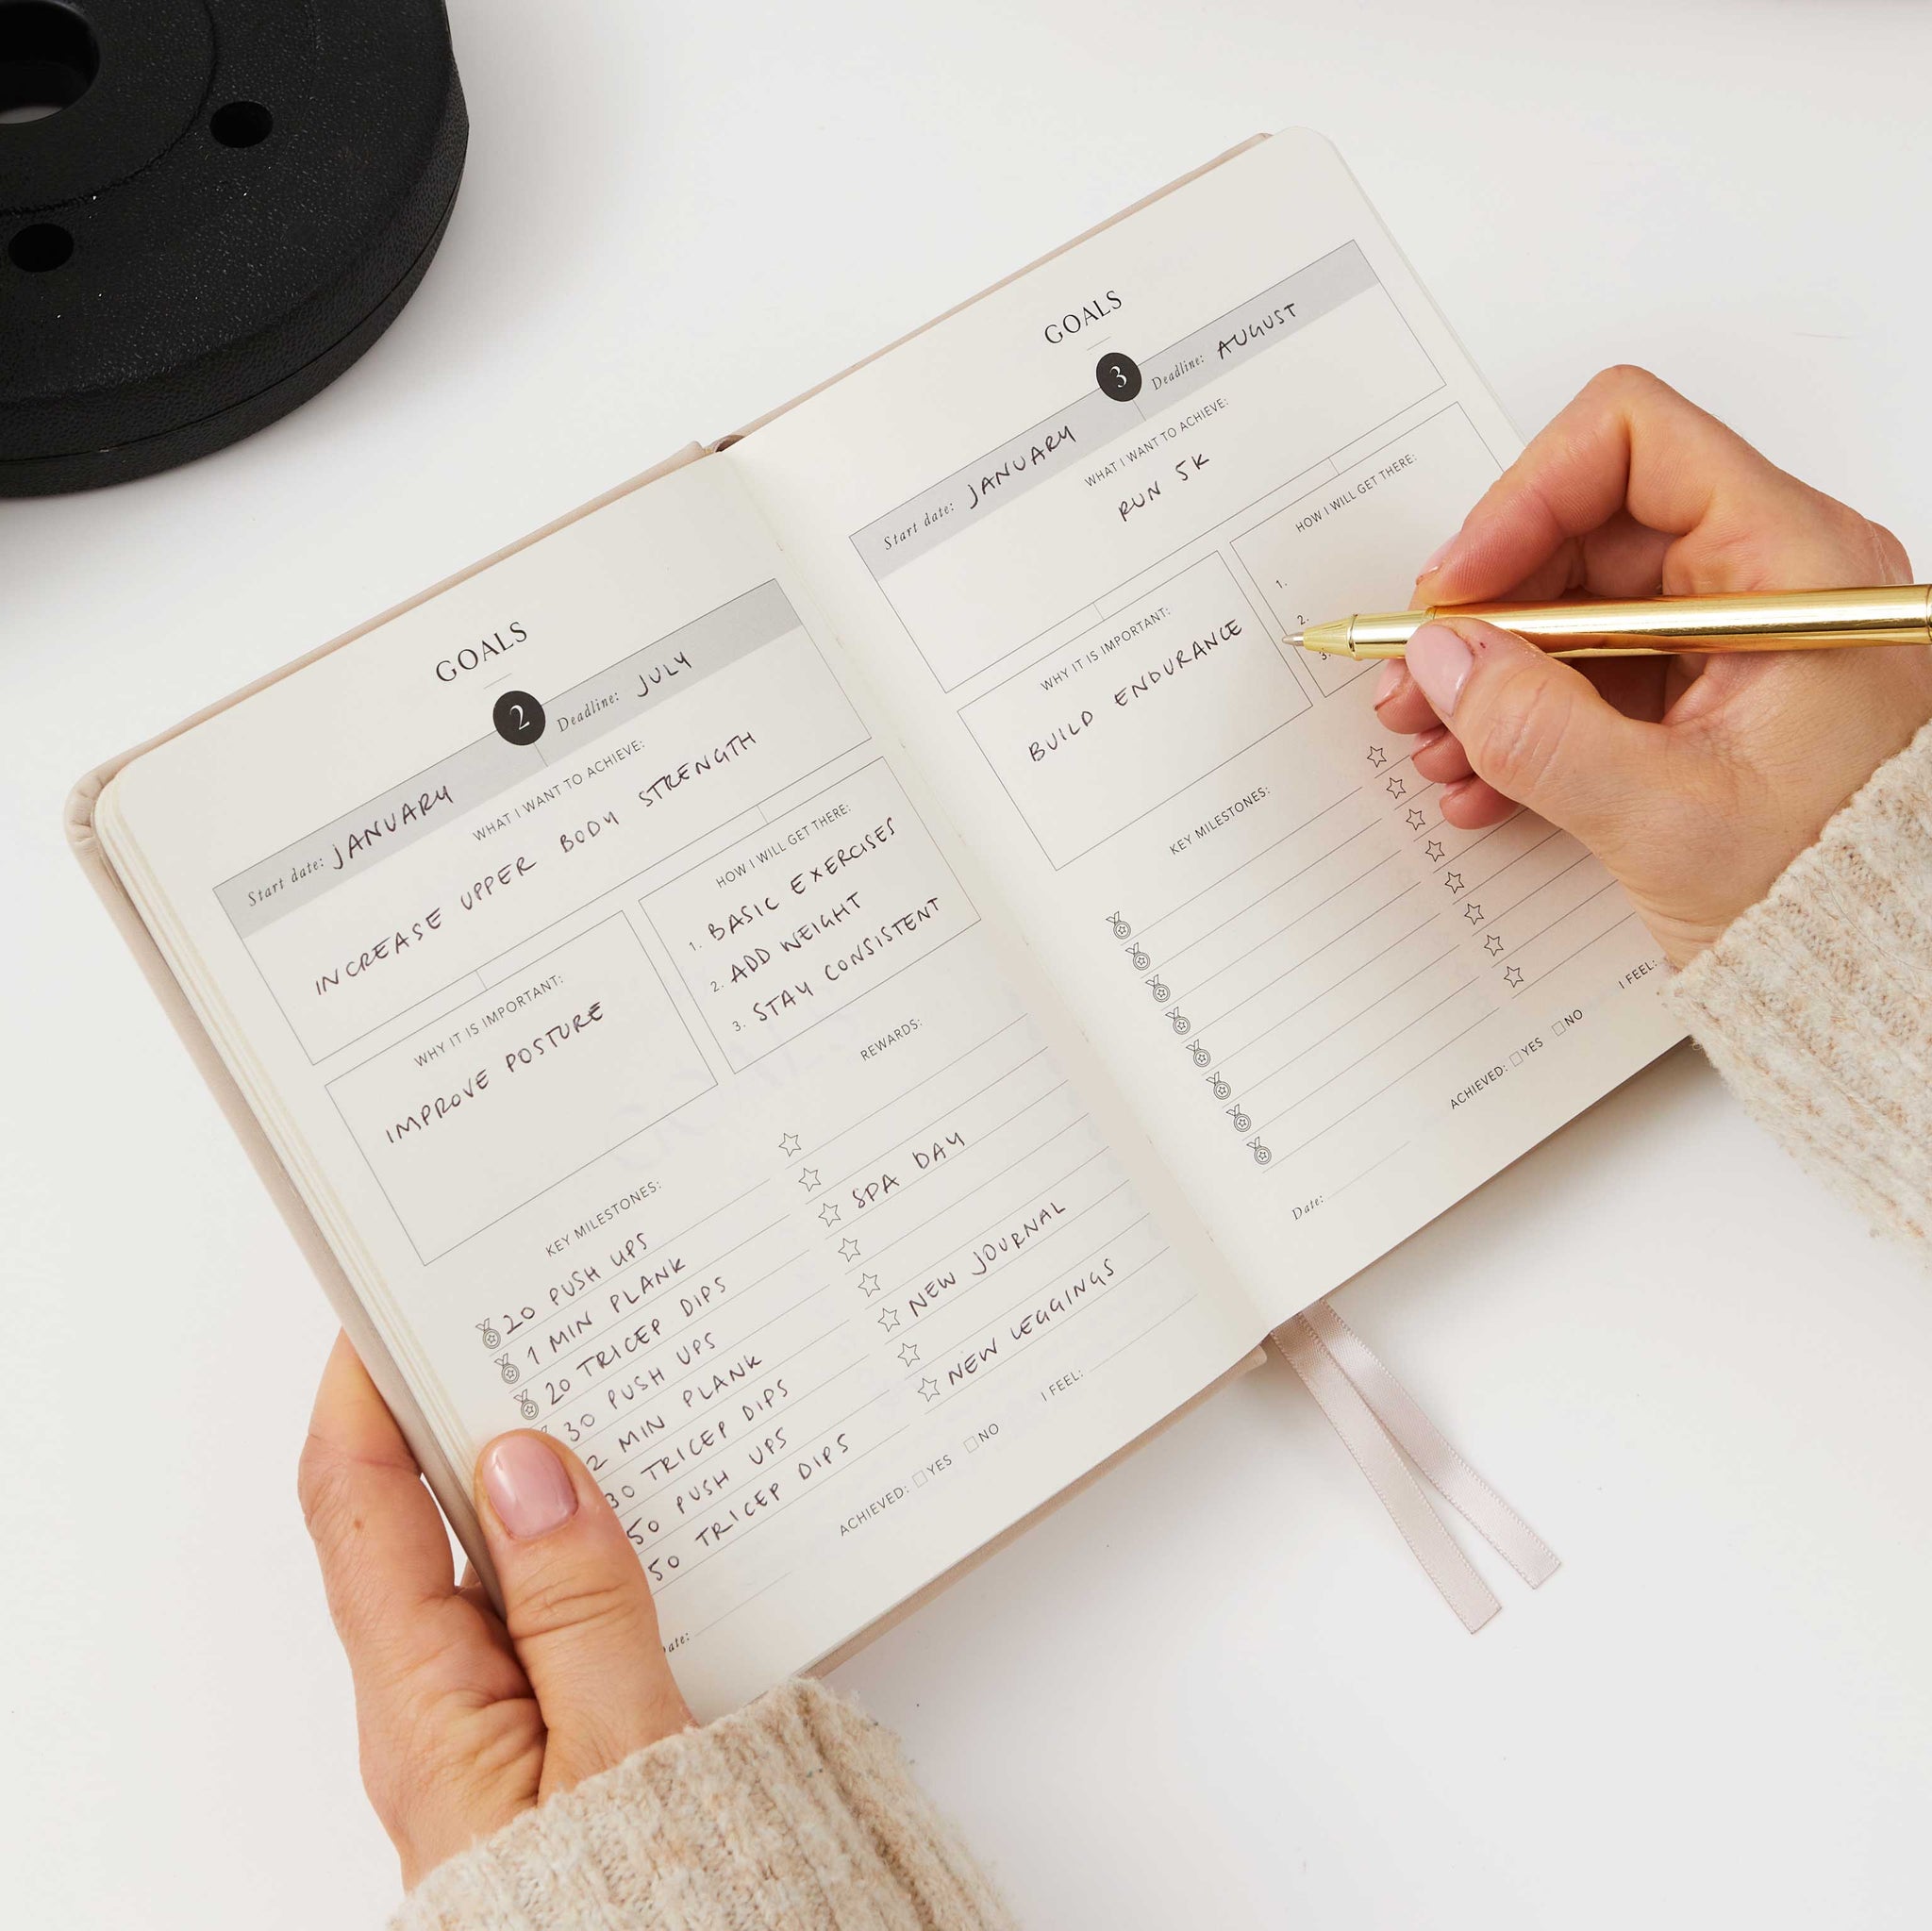 GOALS
2
Start date: JANUARY
Deadline: JULY
WHAT I WANT TO ACHIEVE:
INCREASE UPPER BODY STRENGTH
WHY IT IS IMPORTANT:
IMPROVE POSTURE
HOW I WILL GET THERE:
1. BASIC EXERCISES
2. ADD WEIGHT
3. STAY CONSISTENT
KEY MILESTONES:
20 PUSH UPS
1 MIN PLANK
20 TRICEP DIPS
30 PUSH UPS
2 MIN PLANK
30 TRICEP DIPS
50 PUSH UPS
50 TRICEP DIPS
REWARDS:
SPA DAY
NEW JOURNAL
NEW LEGGINGS
ACHIEVED: YES NO
I FEEL:
GOALS
3
Start date: JANUARY
Deadline: AUGUST
WHAT I WANT TO ACHIEVE:
RUN 5K
WHY IT IS IMPORTANT:
BUILD ENDURANCE
HOW I WILL GET THERE:
1.
2.
3.
KEY MILESTONES:
ACHIEVED: YES NO
I FEEL:
Date: